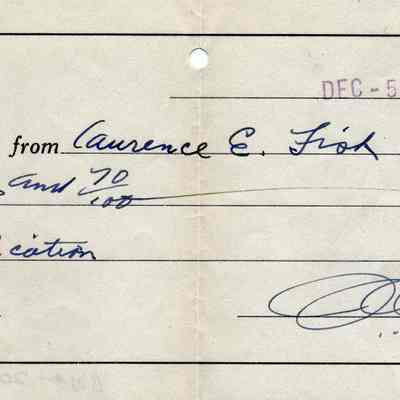 DEC - 5
from Laurence E. Fish
and 70/100
ication